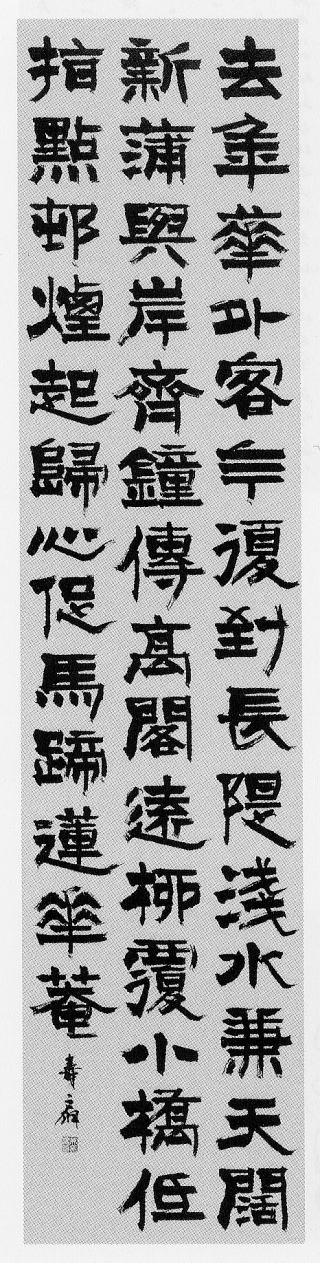 去年華外客復到長隄淺水兼天闊
新蒲與岸齊鐘傳高閣遠柳覆小橋低
指點邨煙起歸心促馬蹄蓮華菴
壽